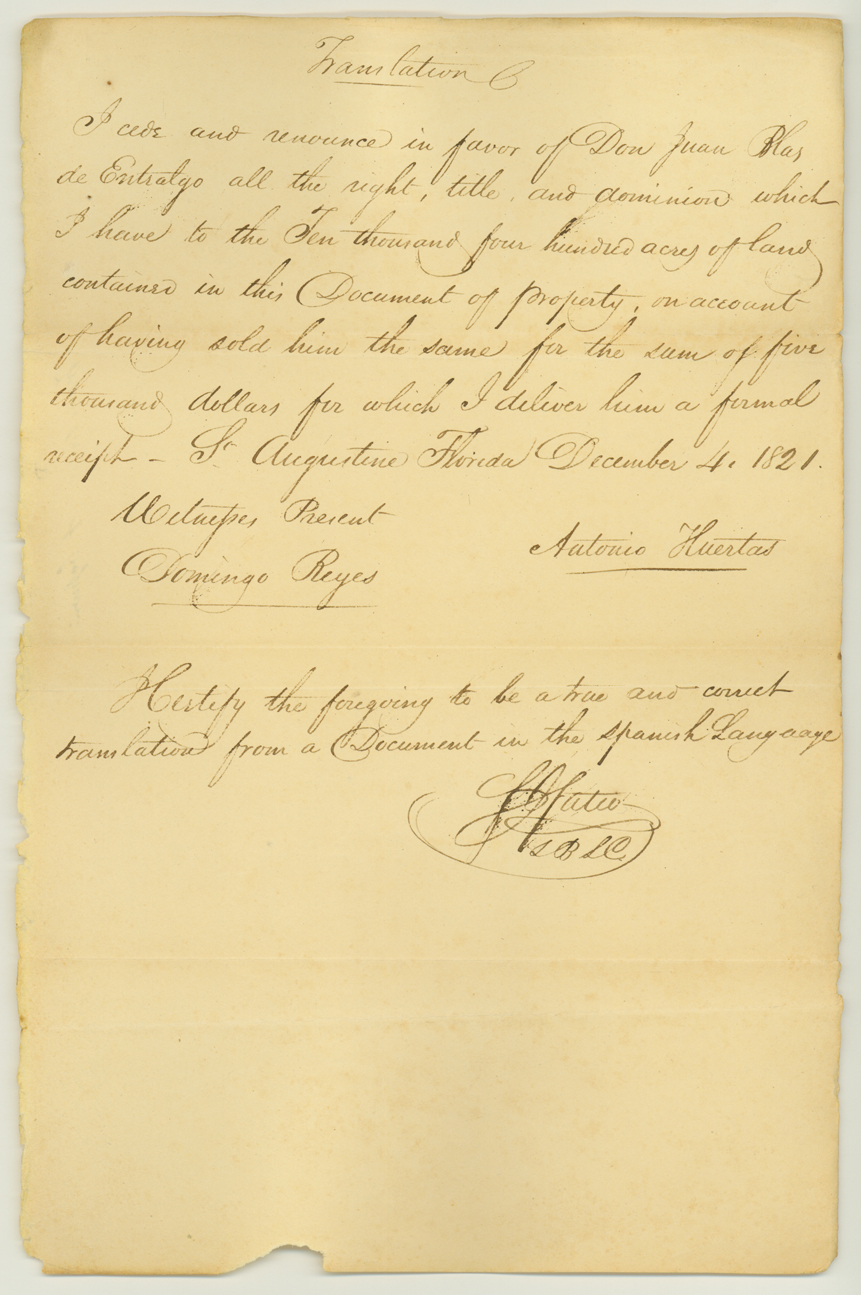 Translation C
I cede and renounce in favor of Don Juan Blas
de Entralgo all the right, title, and dominion which
I have to the Ten thousand four hundred acres of land
contained in this Document of property, on account
of having sold him the same for the sum of five
thousand dollars for which I deliver him a formal
receipt - St Augustine Florida December 4. 1821.
Witnesses Present
Antonio Huertas
Domingo Reyes
I Certify the foregoing to be a true and correct
translation from a Document in the Spanish Language
S B L C